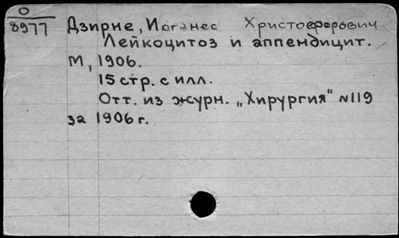 О
8977
Дзирне, Иоганес Христофорович
Лейкоцитоз и аппендицит.
М, 1906.
15 стр. с илл.
Отт. из журн. „Хирургия" №119
за 1906 г.